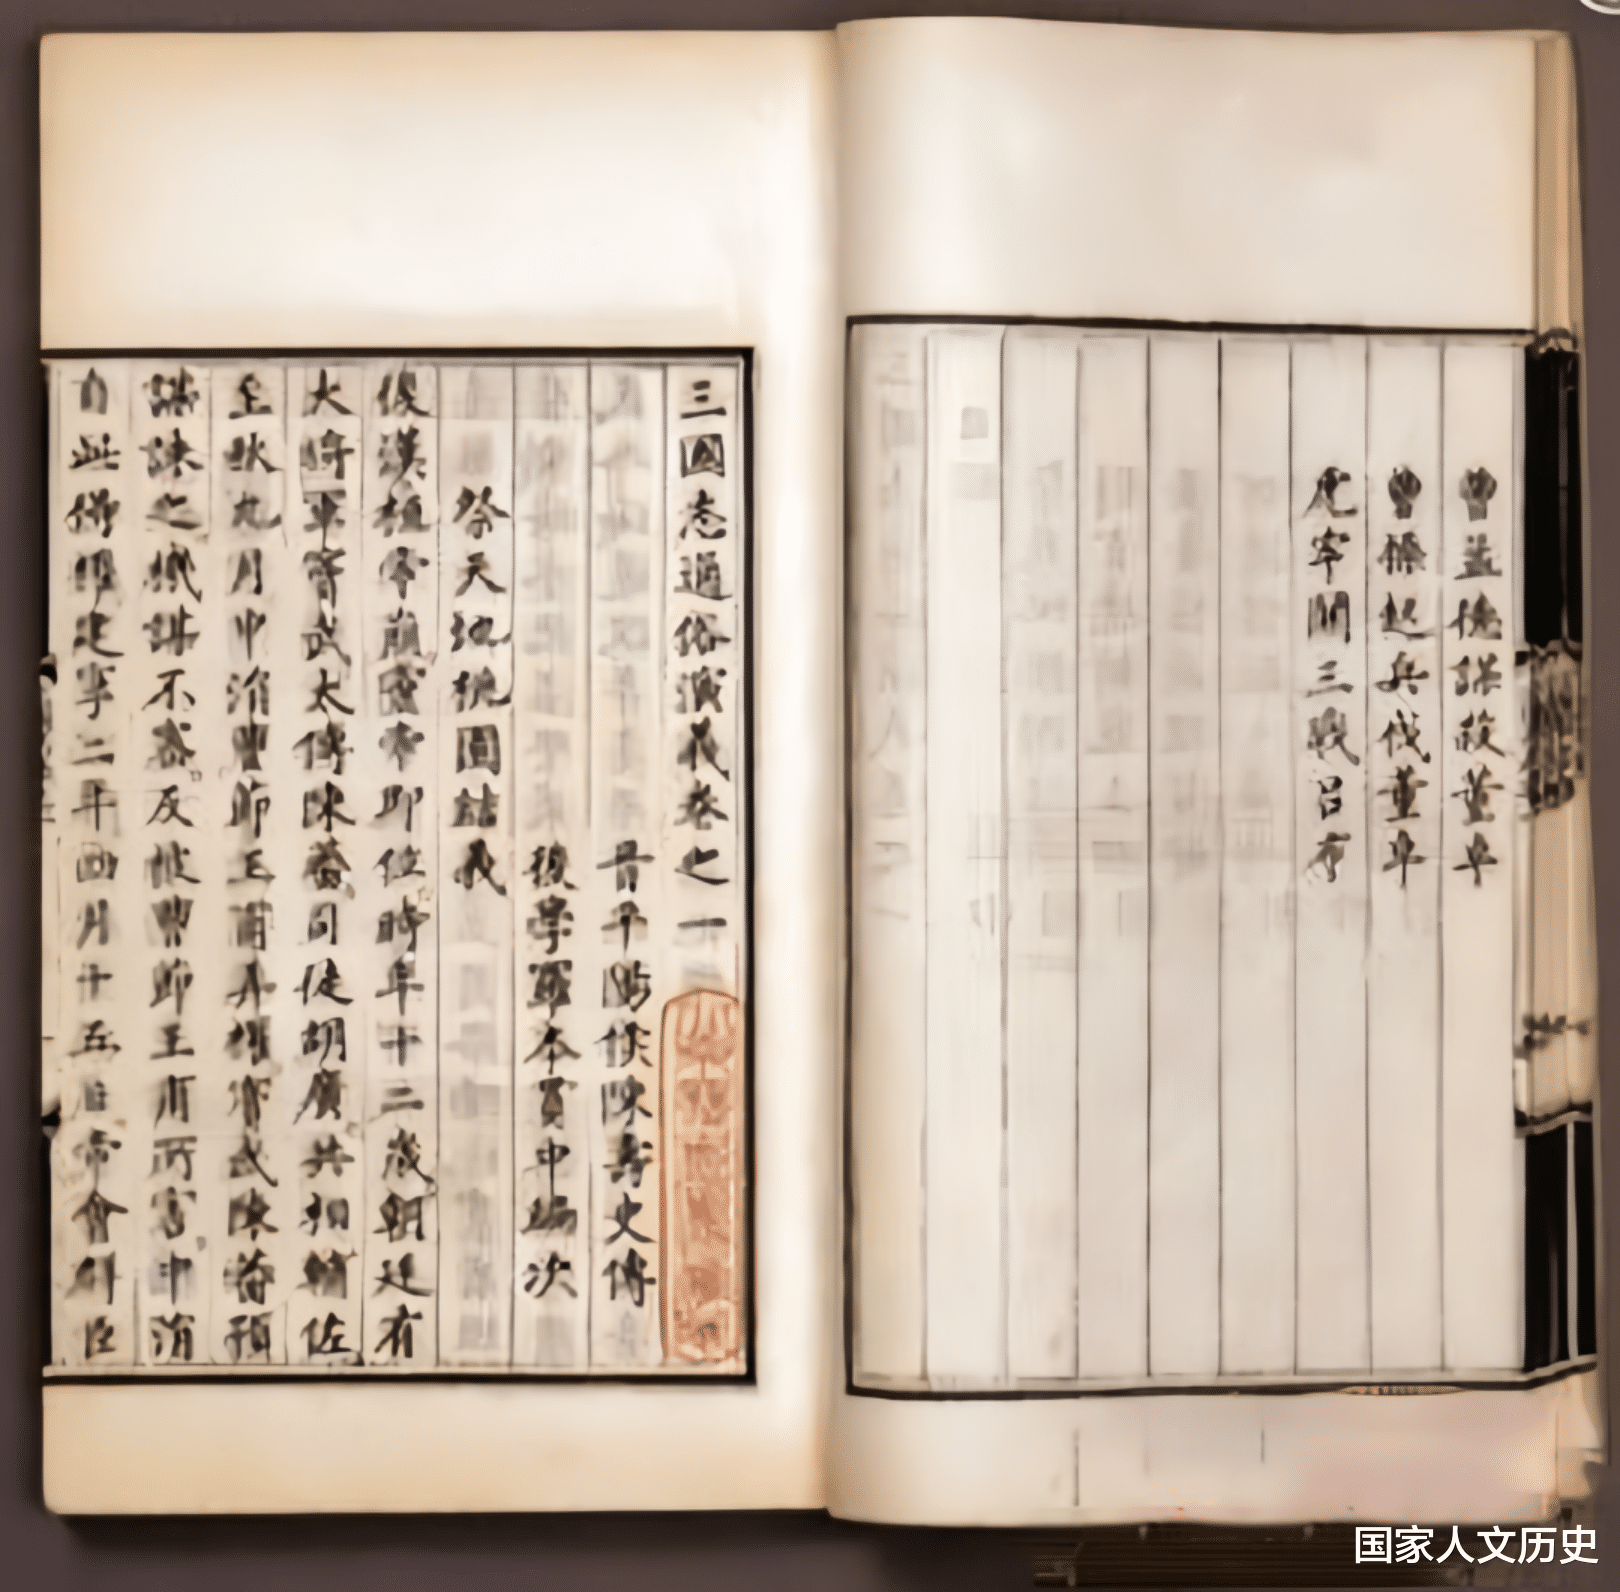 曹孟德謀殺董卓
曹操起兵伐董卓
虎牢關三戰呂布
三國志通俗演義卷之一
晉平陽侯陳壽史傳
後學羅本貫中編次
祭天地桃園結義
後漢桓帝崩靈帝即位時年十二歲朝廷有
大將軍竇武太傅陳蕃司徒胡廣共相輔佐
至秋九月中涓曹節王甫弄權竇武陳蕃預
謀誅之機謀不密反被曹節王甫所害中涓
自此得權建寧二年四月十五日帝會群臣
国家人文历史